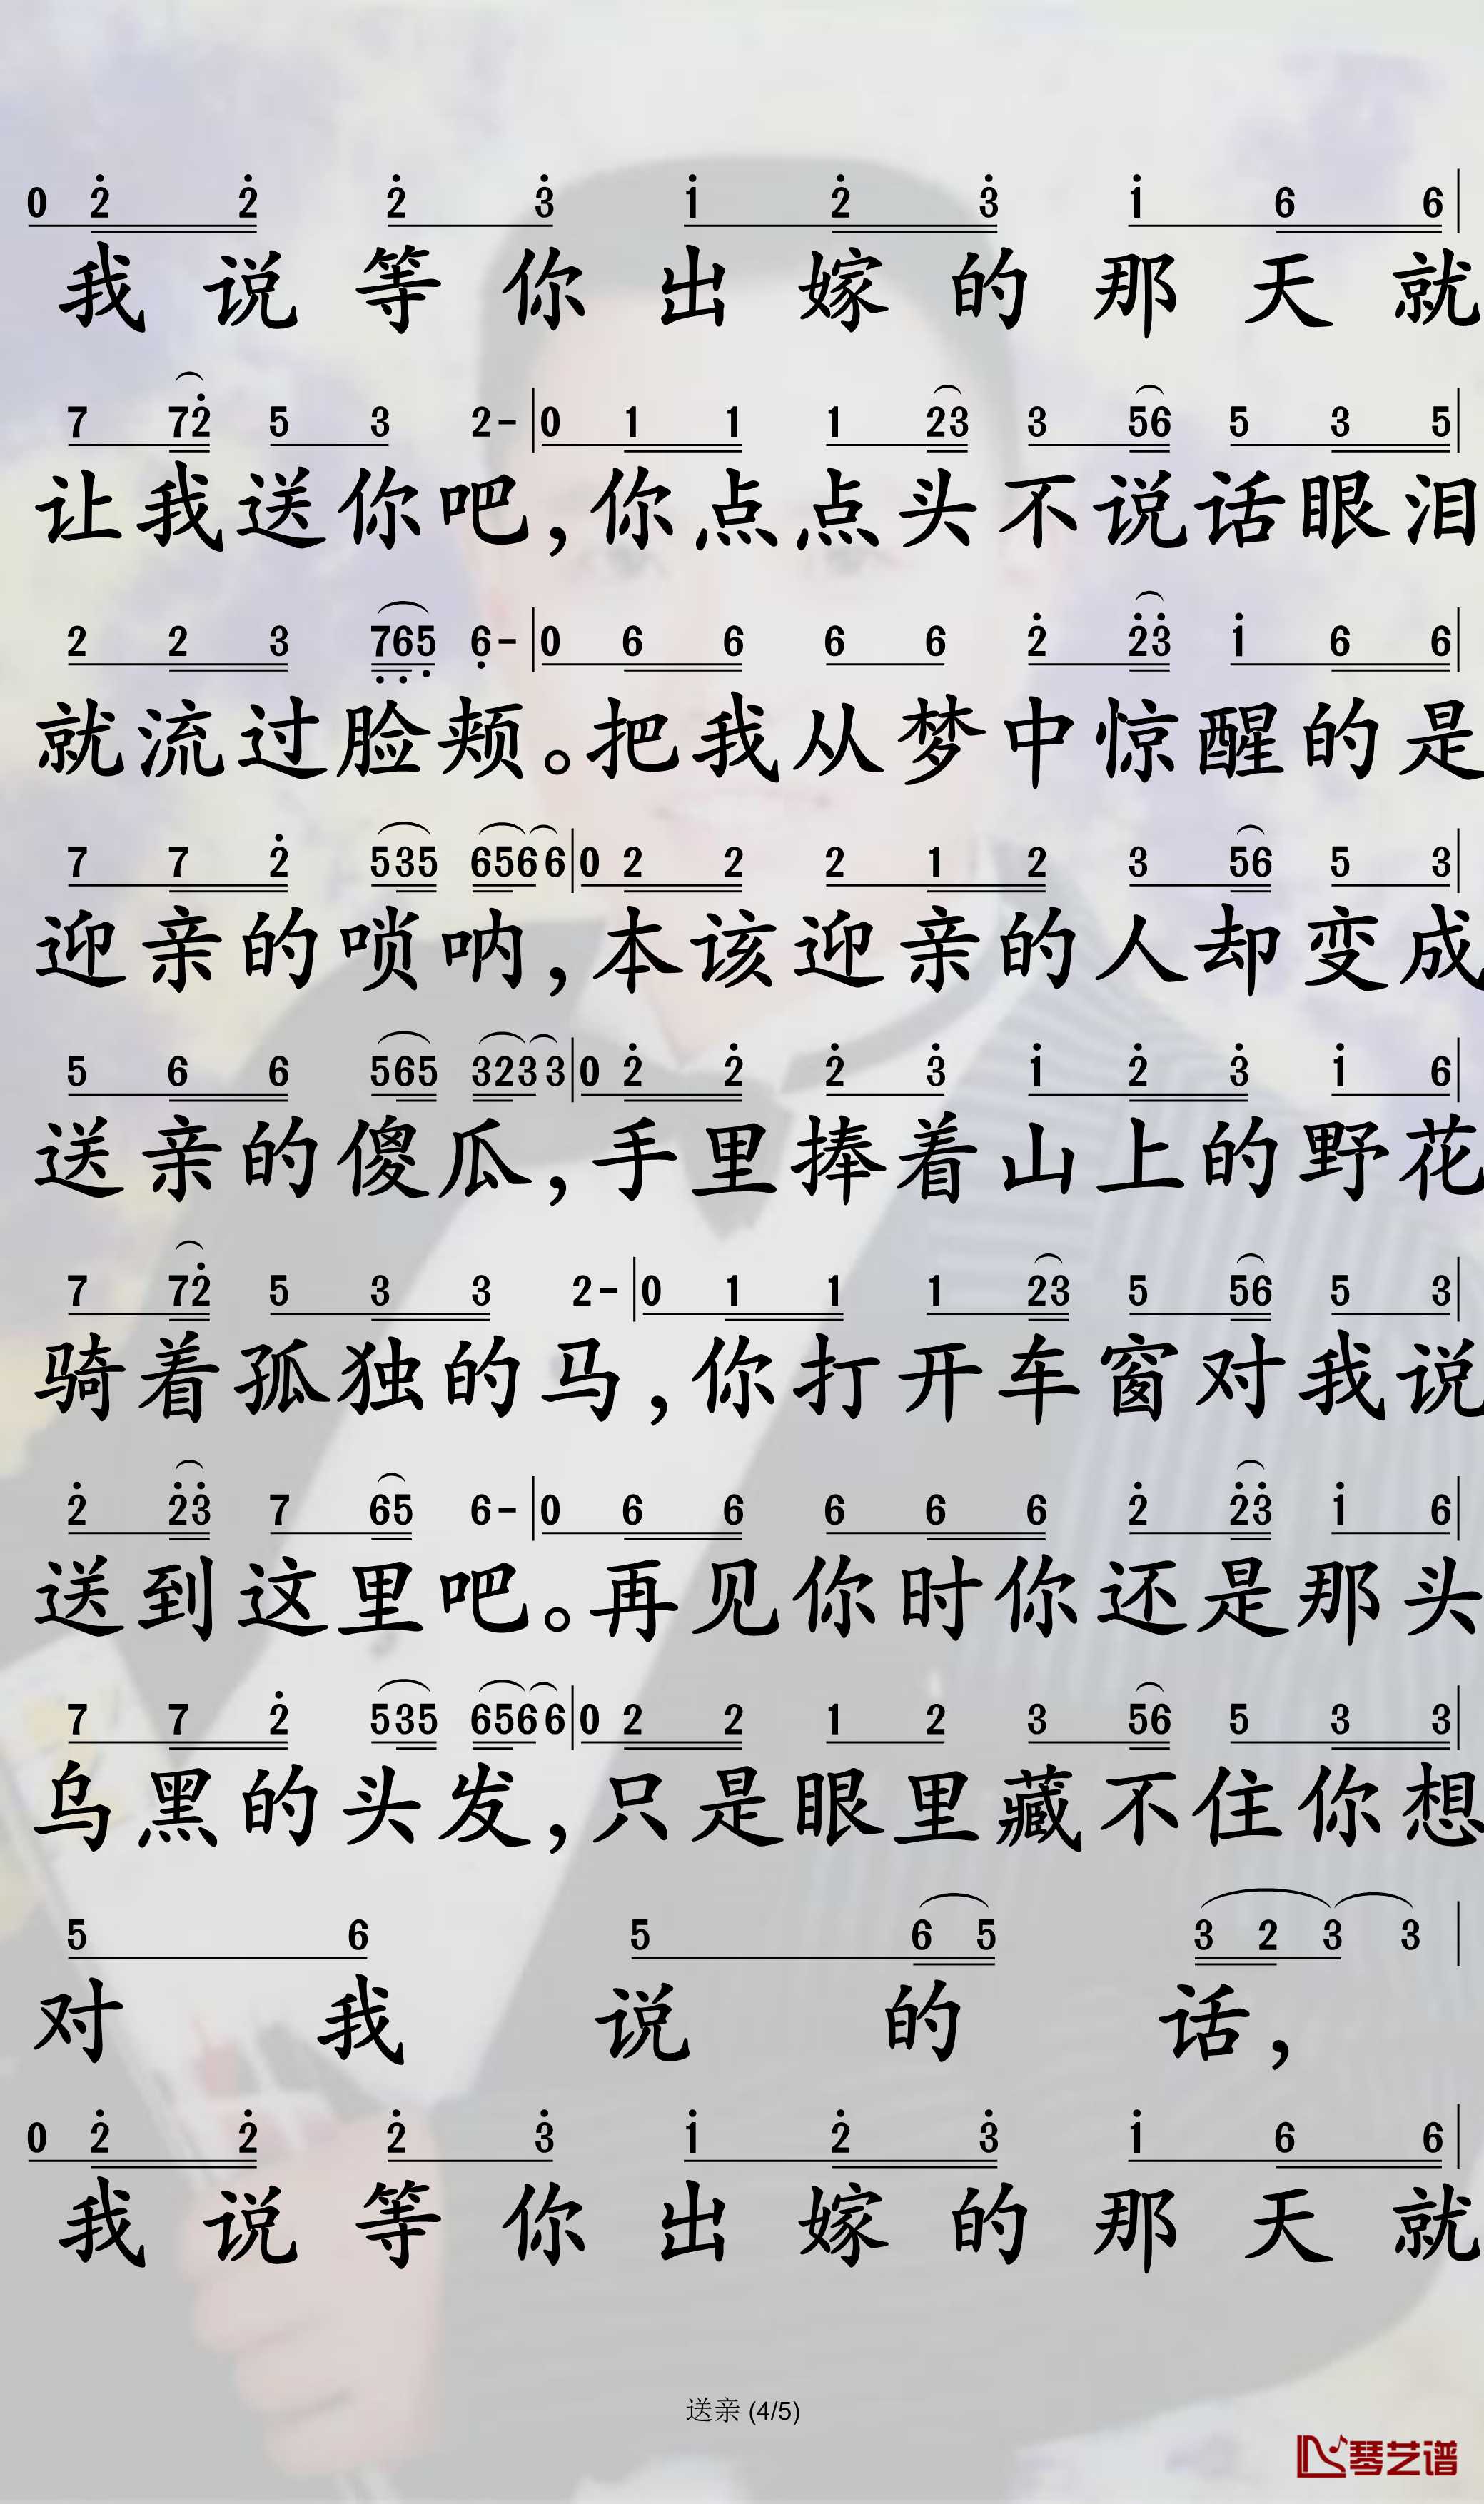 0 2̇ 2̇ 2̇ 3̇ 1̇ 2̇ 3̇ 1̇ 6 6|
我说等你出嫁的那天就
7 72̇ 5 3 2-|0 1 1 1 23 3 56 5 3 5|
让我送你吧,你点点头不说话眼泪
2 2 3 7̣6̣5̣ 6̣-|0 6 6 6 6 2̇ 2̇3̇ 1̇ 6 6|
就流过脸颊。把我从梦中惊醒的是
7 7 2̇ 535 6566|0 2 2 2 1 2 3 56 5 3|
迎亲的唢呐,本该迎亲的人却变成
5 6 6 565 3233|0 2̇ 2̇ 2̇ 3̇ 1̇ 2̇ 3̇ 1̇ 6|
送亲的傻瓜,手里捧着山上的野花
7 72̇ 5 3 3 2-|0 1 1 1 23 5 56 5 3|
骑着孤独的马,你打开车窗对我说
2̇ 2̇3̇ 7 65 6-|0 6 6 6 6 6 2̇ 2̇3̇ 1̇ 6|
送到这里吧。再见你时你还是那头
7 7 2̇ 535 6566|0 2 2 1 2 3 56 5 3 3|
乌黑的头发,只是眼里藏不住你想
5 6 5 6 5 3 2 3 3|
对我说的话,
0 2̇ 2̇ 2̇ 3̇ 1̇ 2̇ 3̇ 1̇ 6 6|
我说等你出嫁的那天就
送亲 (4/5)
琴艺谱